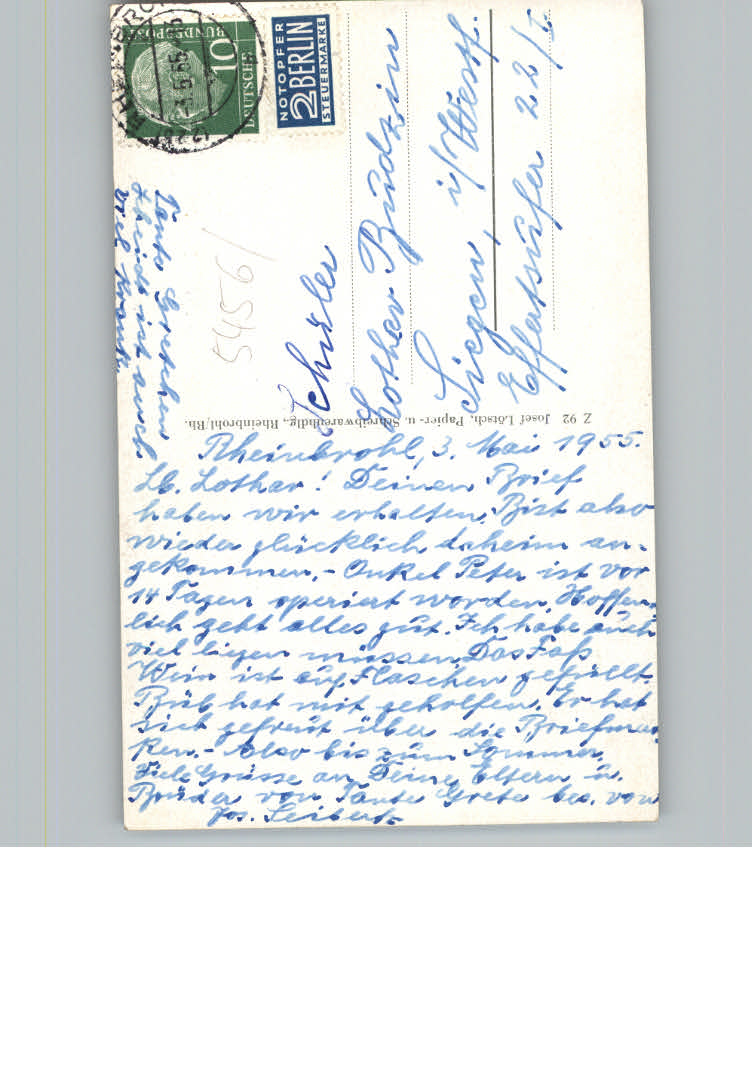 Rheinbrohl, 3. Mai 1955.
Lb. Lothar! Deinen Brief
haben wir erhalten. Bist also
wieder glücklich daheim an-
gekommen. - Onkel Peter ist vor
14 Tagen operiert worden. Hoffent-
lich geht alles gut. Ich habe auch
viel liegen müssen. Das Faß
Wein ist auf Flaschen gefüllt.
Bub hat mit geholfen. Er hat
sich gefreut über die Briefmar-
ken. - Also bis zum Sommer.
Viele Grüsse an Deine Eltern u.
Brüder von Tante Grete bes. von
Jos. Seibert
Tante Gretchen
ist auch
viel krank.
Schüler
Lothar Budzin
Siegen, i/Westf.
Effertsufer 22/I
5456/
Z 92 Josef Lötsch, Papier- u. Schreibwarenhdlg., Rheinbrohl/Rh.
DEUTSCHE
BUNDESPOST
10
NOTOPFER
2 BERLIN
STEUERMARKE
-3.5.55